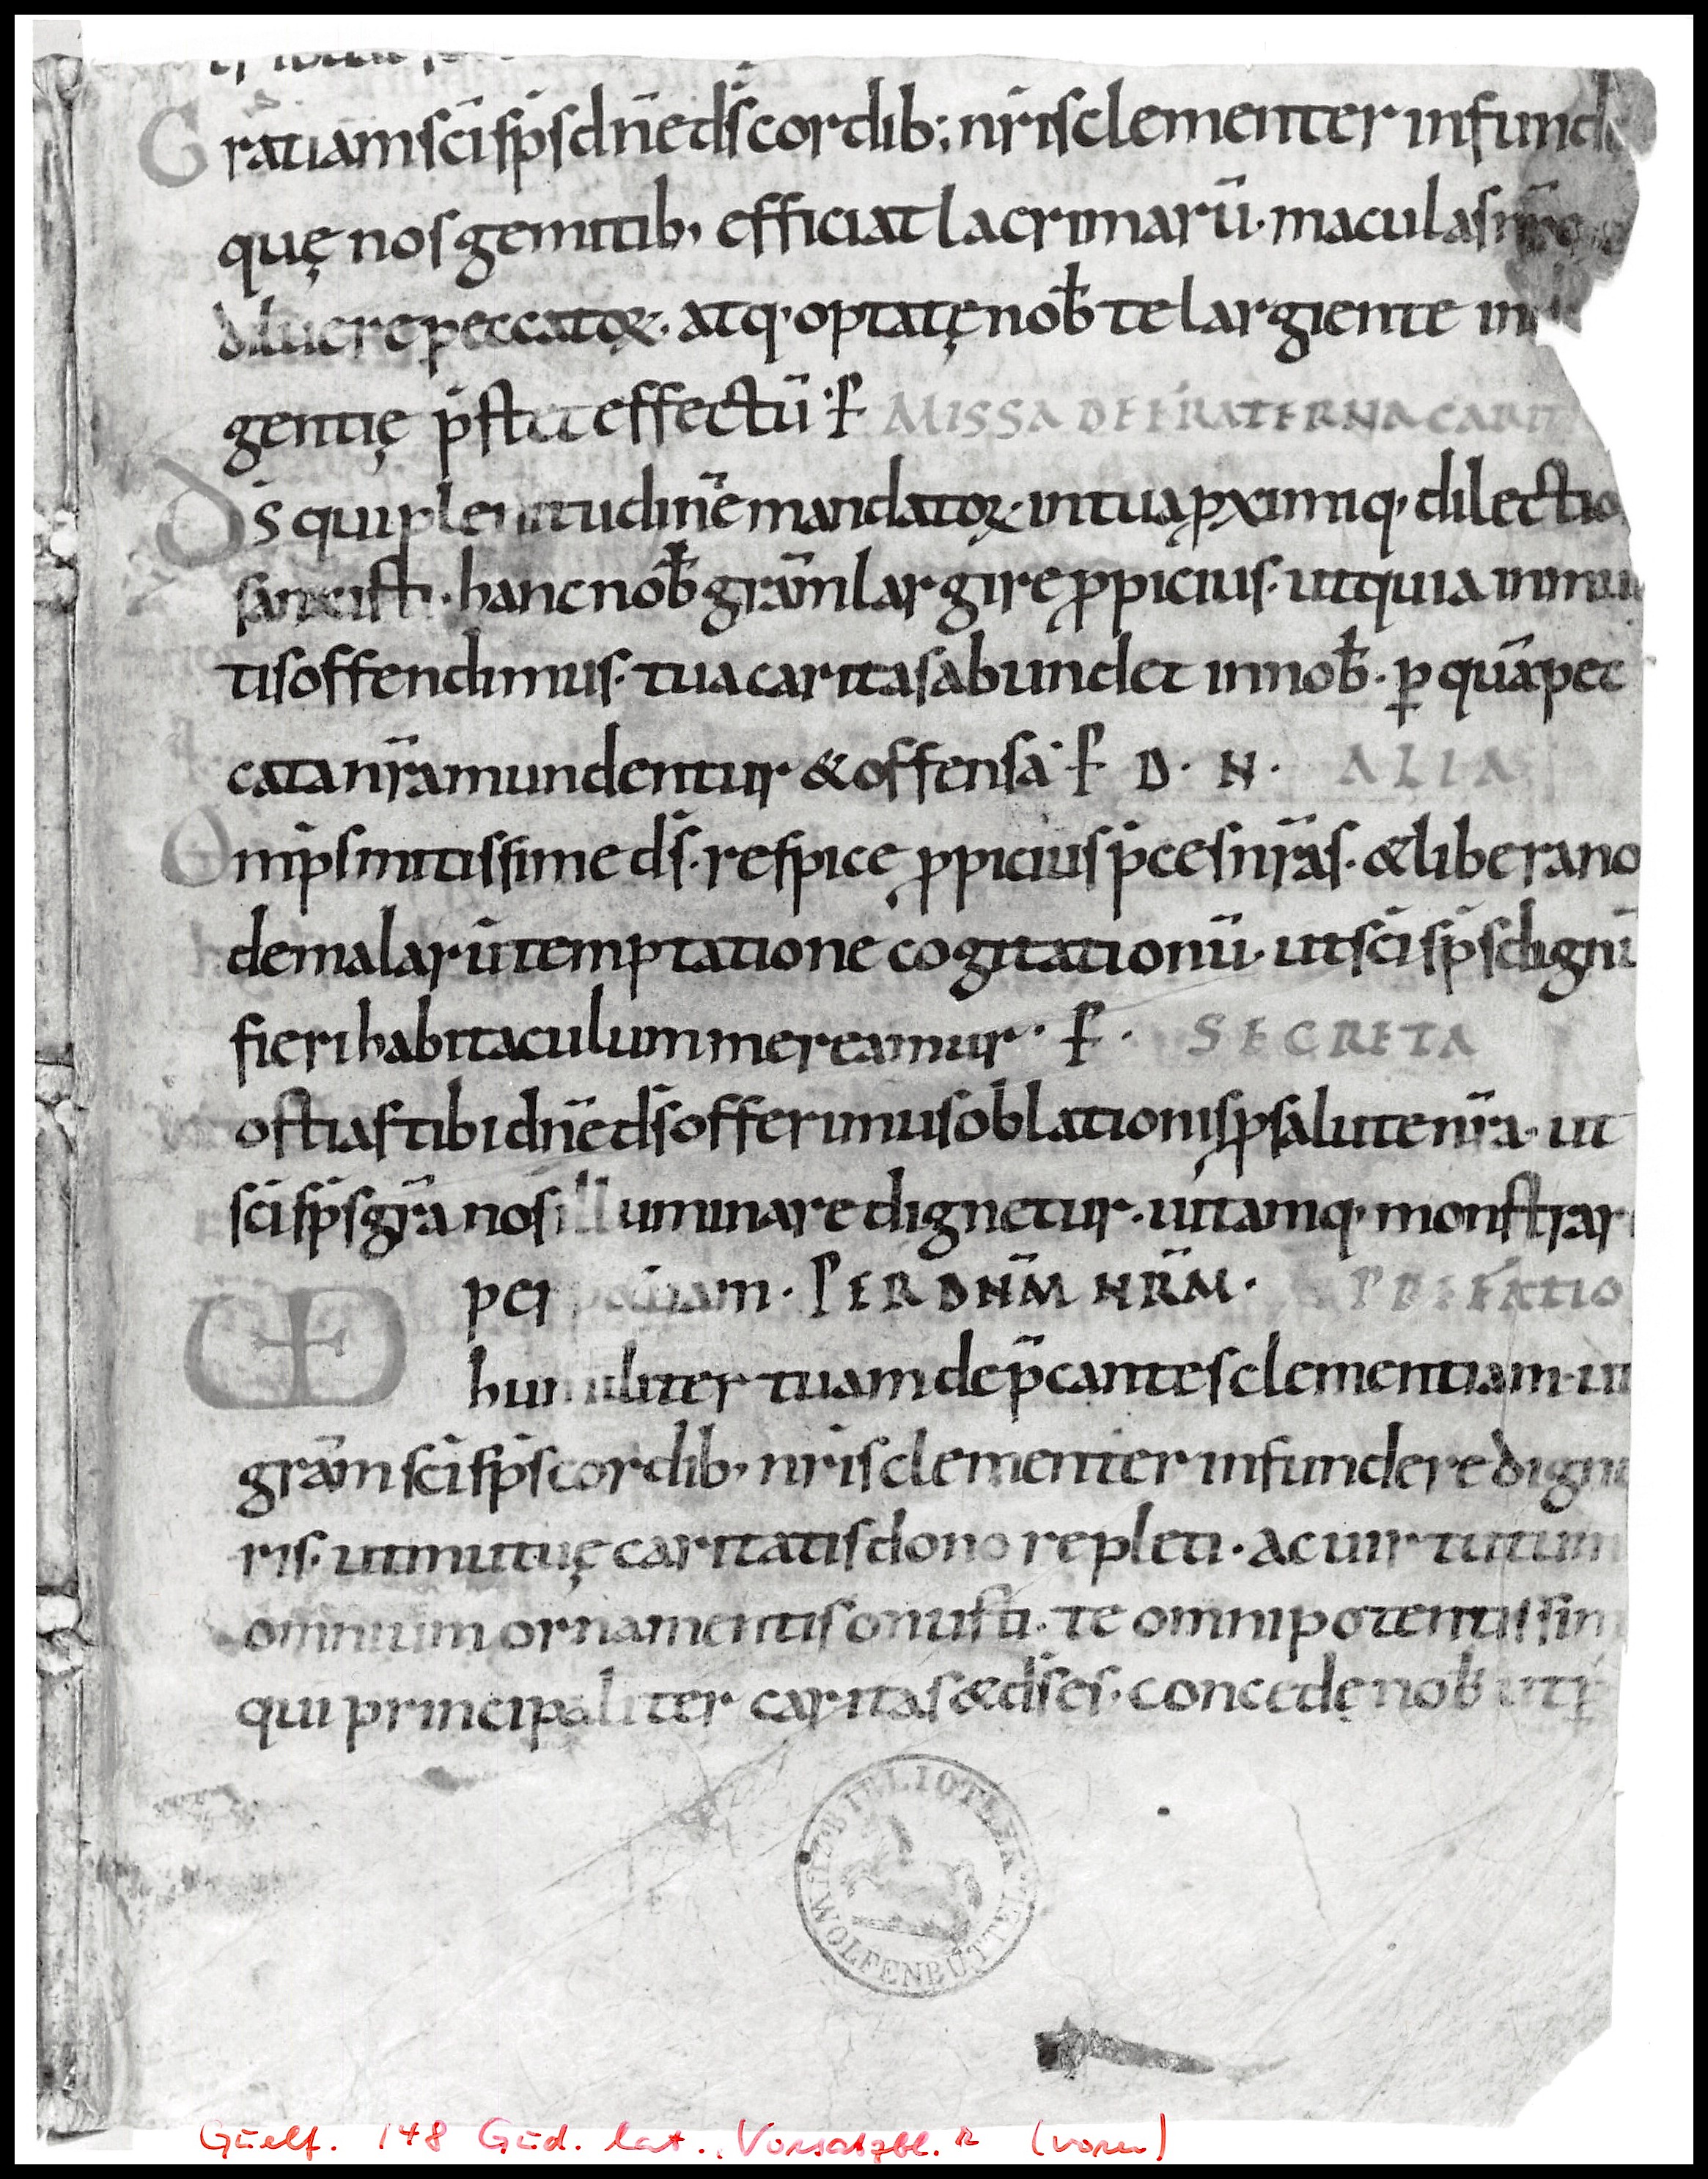 Gratiam sc̄i sp̄s dn̄e ds̄ cordib; nr̄is clementer infund
quę nos gemitib; efficiat lacrimarū· maculas nr̄
diluere peccatoꝝ· atq· optatę nob̄ te largiente in
gentię p̄stet effectū· ꝑ MISSA DE FRATERNA CARIT
Ds̄ qui plenitudinē mandatoꝝ· in tua ꝓximiq· dilectio
sanxisti· hanc nob̄ gr̄am largire ꝓpicius· ut quia in mul
tis offendimus· tua caritas abundet in nob̄· ꝑ quā pec
cata nr̄a mundentur & offensa· ꝑ D· N· ALIA
Omīps mitissime ds̄· respice ꝓpicius p̄ces nr̄as· & libera no
de malarū temptatione cogitationū· ut sc̄i sp̄s dignū
fieri habitaculum mereamur· ꝑ· SECRETA
ostias tibi dn̄e ds̄ offerimus oblationis ꝓ salute nr̄a· ut
sc̄i sp̄s gr̄a nos illuminare dignetur· uitamq· monstrar
perpetuam· PER DN̄M NR̄M· PREFATIO
VD humiliter tuam dep̄cantes clementiam· ut
gr̄am sc̄i sp̄s cordib; nr̄is clementer infundere digne
ris· ut mutuę caritatis dono repleti· ac uirtutum
omnium ornamentis onusti· te omnipotentissim
qui principaliter caritas & ds̄ es· concede nob̄ ut p
BIBLIOTHEKA WOLFENBÜTTEL
Guelf. 148 Gud. lat. Vorsatzbl. r (vorn)